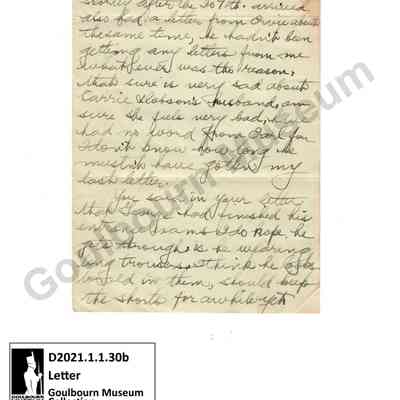 after the 207th. arrived
also had a letter from Orvie about
the same time, he hadn't been
getting any letters from me
whatever was the reason,
that sure is very sad about
Carrie Hobson's husband, am
sure she feels very bad,
had no word from for
I don't know how long he
mustn't have gotten my
last letter.
You say in your letter
that had finished his
entrance exams I do hope he
gets through, is he wearing
long trousers, I think he
in them, should keep
the shorts for awhile yet
Goulbourn Museum
D2021.1.1.30b
Letter
Goulbourn Museum
Collection
GOULBOURN